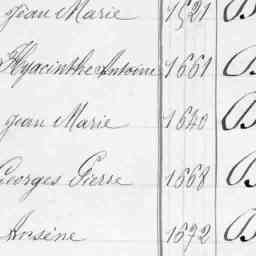 Jean Marie 1521 B
Hyacinthe Antoine 1661 B
Jean Marie 1640 B
Georges Pierre 1668 B
Arsène 1672 B